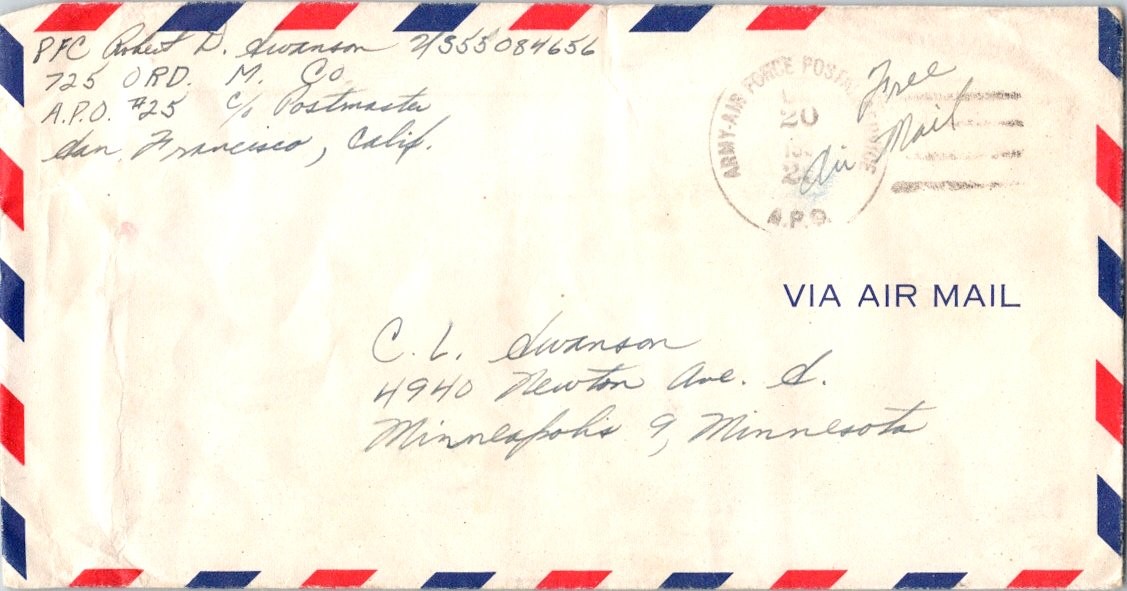 PFC Robert D. Swanson US55084656
725 ORD. M. Co
A.P.O. #25 c/o Postmaster
San Francisco, Calif.
ARMY-AIR FORCE POSTAL SERVICE
20
A.P.O.
Free
Air Mail
VIA AIR MAIL
C. L. Swanson
4940 Newton Ave. S.
Minneapolis 9, Minnesota